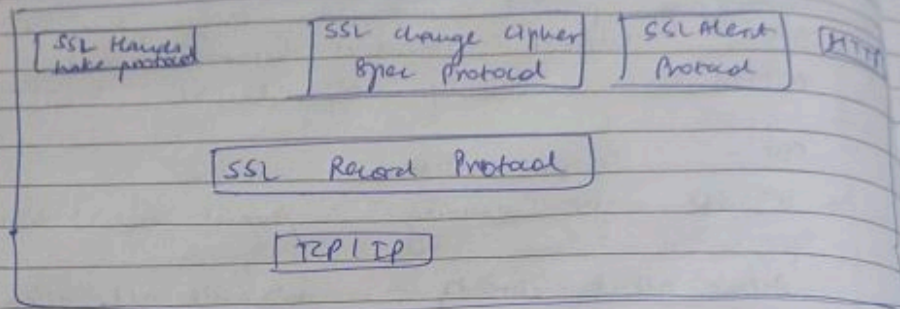 SSL Hands
hake protocol
SSL change Cipher
Spec Protocol
SSL Alert
Protocol
HTTP
SSL Record Protocol
TCP / IP